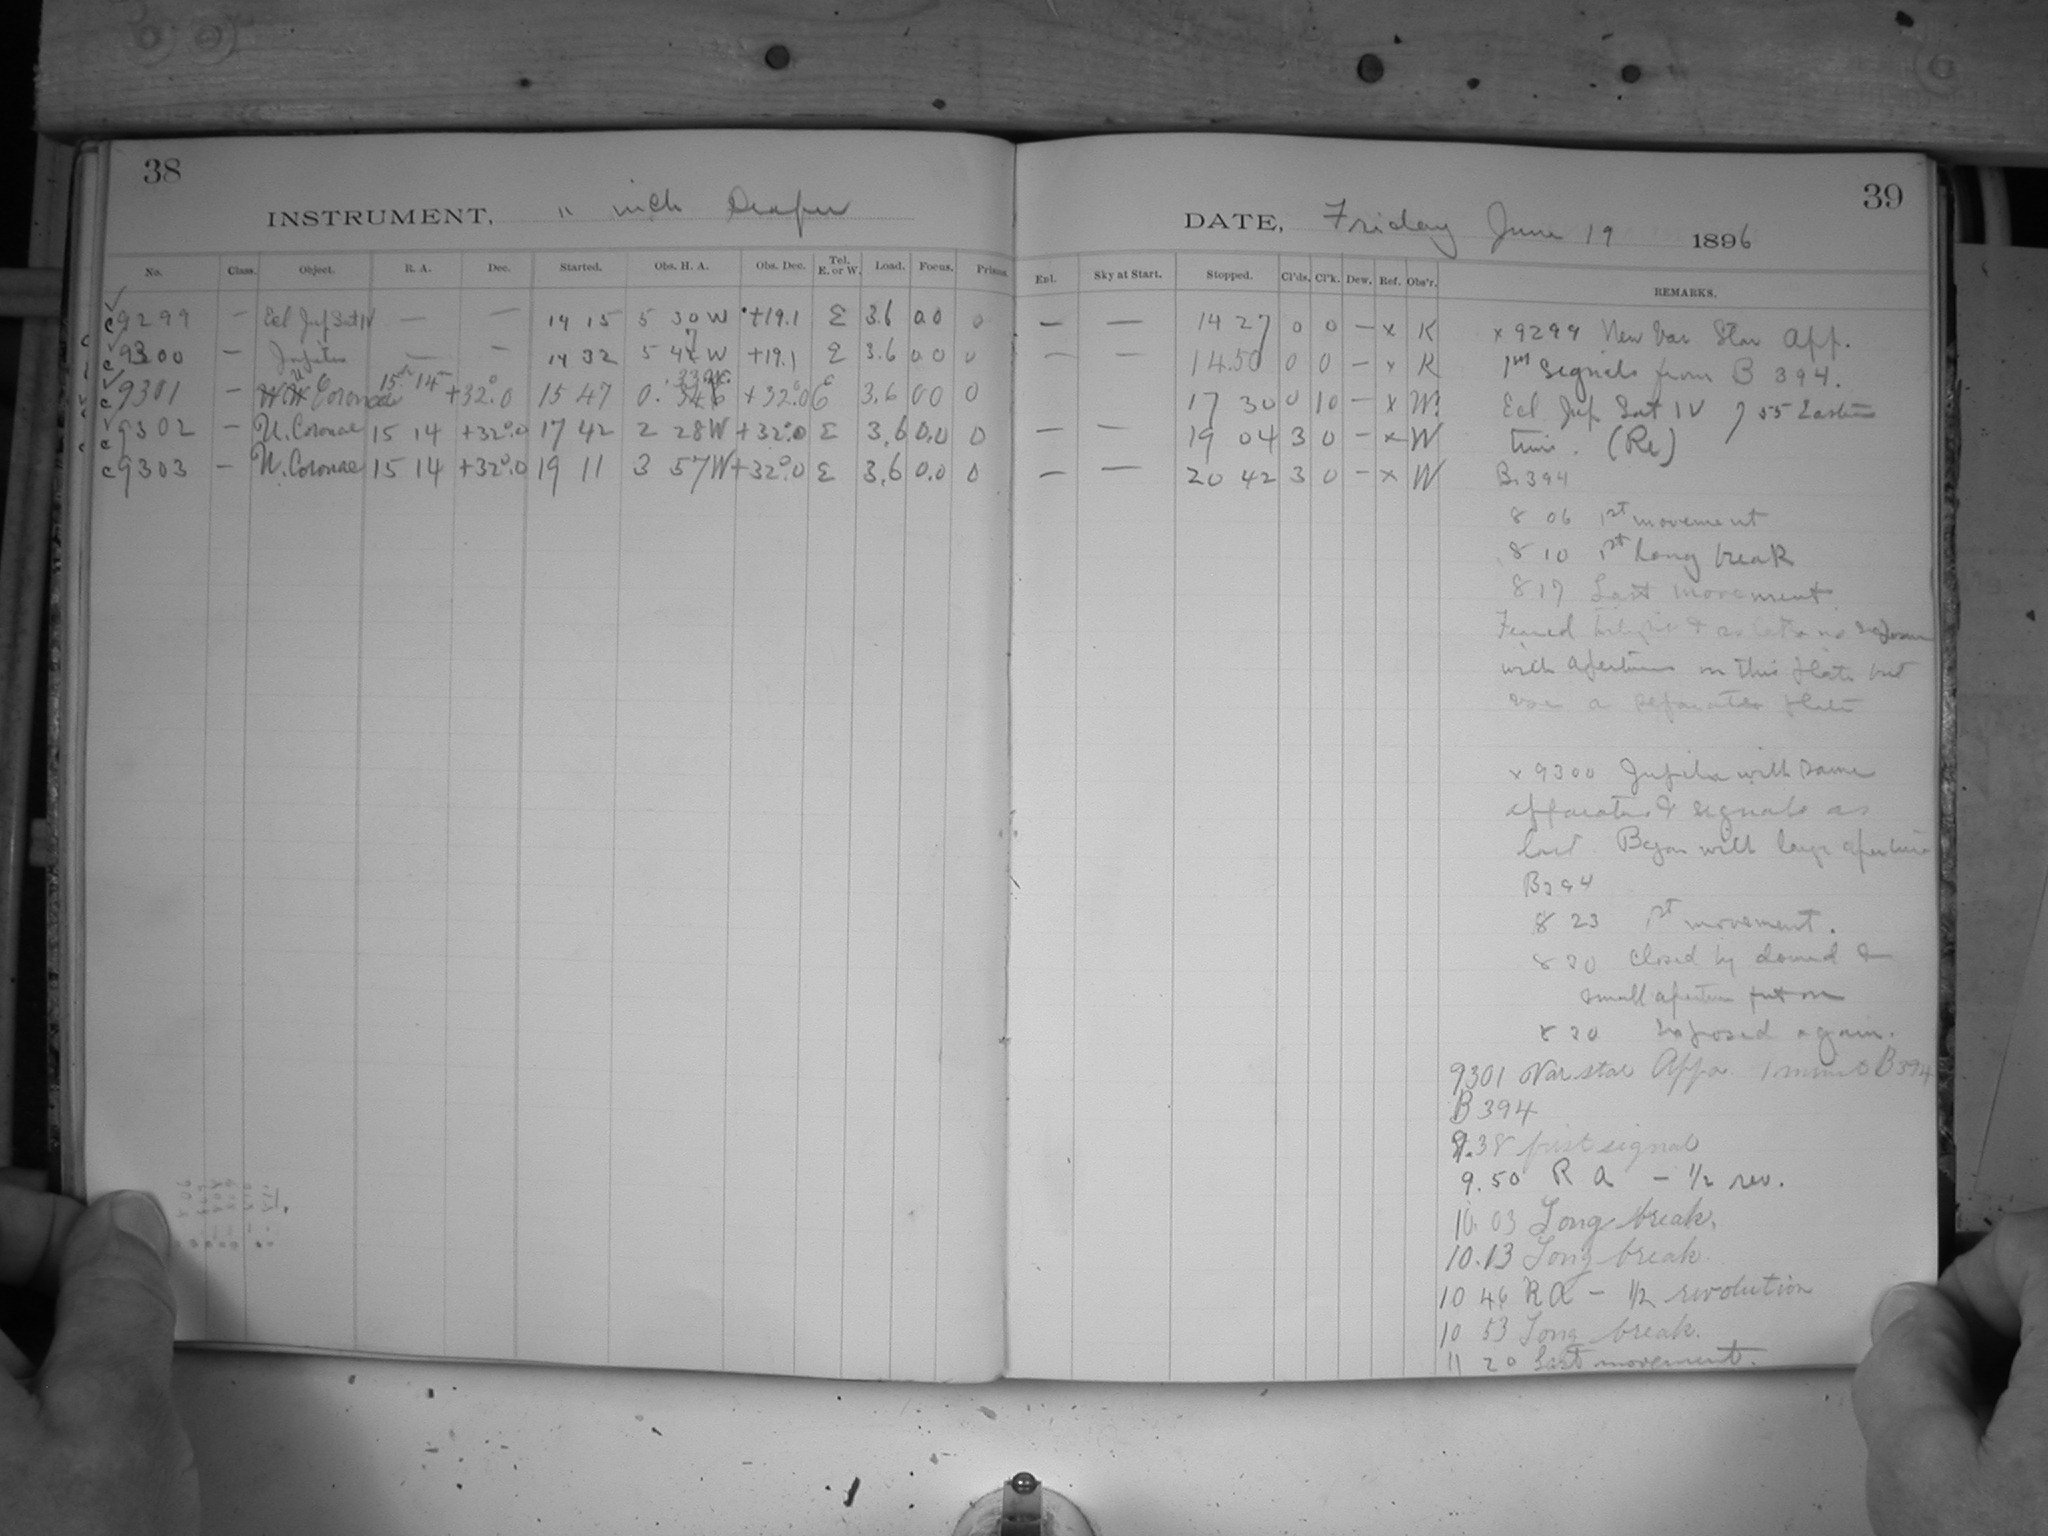 38
INSTRUMENT, 11 inch Draper
No. Class. Object. R. A. Dec. Started. Obs. H. A. Obs. Dec. Tel. E. or W. Load. Focus. Prisms.
c9299 — Ecl Jup Sat IV — — 14 15 5 30 W +19.1 E 3.6 0.0 0
c9300 — Jupiter — — 14 32 5 47 W +19.1 E 3.6 0.0 0
c9301 — U Coronae 15h 14m +32°.0 15 47 0. +32°.0 E 3.6 0.0 0
c9302 — U. Coronae 15 14 +32°.0 17 42 2 28 W +32°.0 E 3.6 0.0 0
c9303 — U. Coronae 15 14 +32°.0 19 11 3 57 W +32°.0 E 3.6 0.0 0
39
DATE, Friday June 19 1896
Enl. Sky at Start. Stopped. Cl'ds. Cl'k. Dew. Ref. Obs'r. REMARKS.
— — 14 27 0 0 — x K
— — 14.50 0 0 — x K
17 30 0 10 — x W.
— — 19 04 3 0 — x W
— — 20 42 3 0 — x W
x 9299 New Var Star App.
1m signals from B 394.
Ecl Jup Sat IV 7 55 Eastern
time. (Re)
B. 394
8 06 1st movement
8 10 1st Long break
8 17 Last movement
Feared & no
with apertures on this plate but
use a separate plate
x 9300 Jupiter with same
apparatus & signals as
last. Began with large aperture
B394
8 23 1st movement.
8 30 closed by &
small aperture put on
8 30 Exposed again.
9301 Var star Appa. 1 min B394
B 394
9.38 first signal
9.50 R A — 1/2 rev.
10 03 Long break.
10.13 Long break.
10 46 R A — 1/2 revolution
10 53 Long break.
11 20 Last movement.